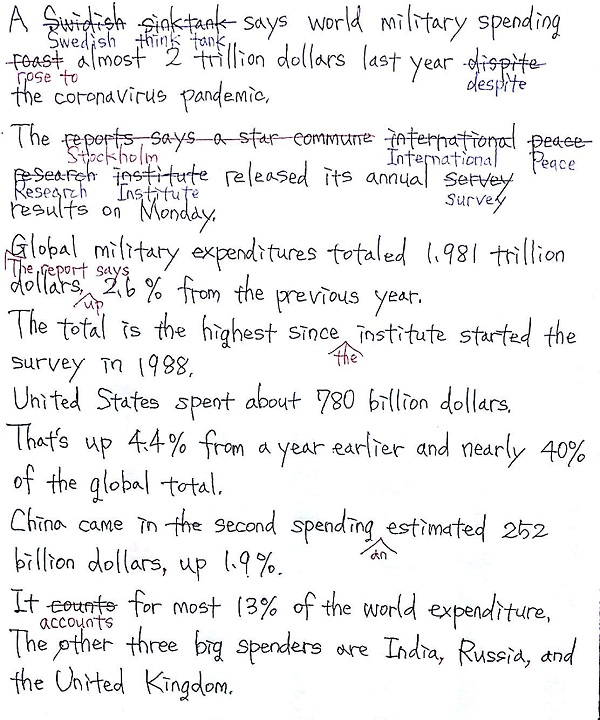 A Swidish sinktank says world military spending
Swedish think tank
roast almost 2 trillion dollars last year dispite
rose to despite
the coronavirus pandemic.
The reports says a star commune international peace
Stockholm International Peace
research institute released its annual servey
Research Institute survey
results on Monday.
Global military expenditures totaled 1.981 trillion
The report says
dollars, 2.6% from the previous year.
up
The total is the highest since institute started the
the
survey in 1988.
United States spent about 780 billion dollars.
That's up 4.4% from a year earlier and nearly 40%
of the global total.
China came in the second spending estimated 252
an
billion dollars, up 1.9%.
It counts for most 13% of the world expenditure.
accounts
The other three big spenders are India, Russia, and
the United Kingdom.